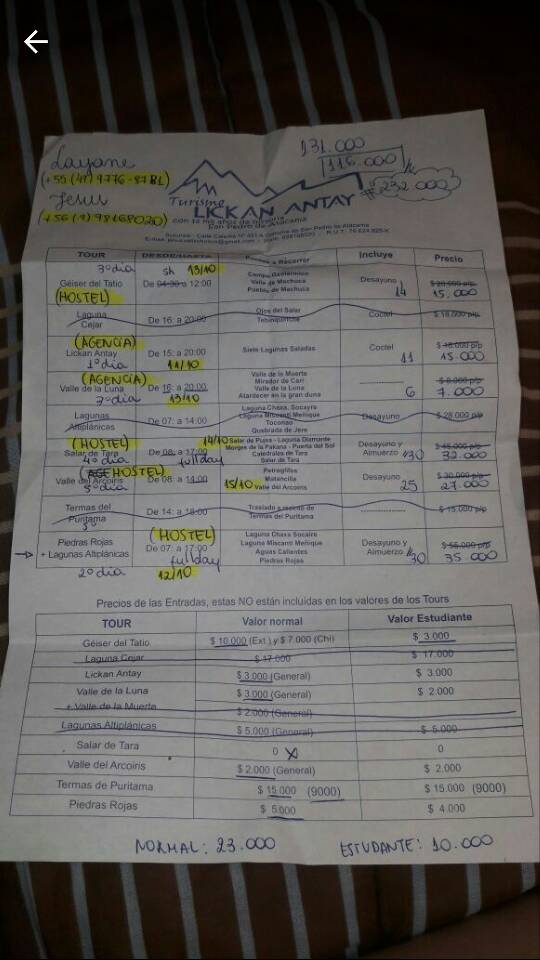 Layane
(+55 (41) 9776-8781)
Jesus
(+56 (9) 98168020)
131.000
116.000
232.000
Turismo
LICKAN ANTAY
San Pedro de Atacama
TOUR DESDE/HASTA Incluye Precio
3º dia 5h 13/10
Géiser del Tatio De 04:30 a 12:00 Campo Geotérmico Valle de Machuca Pueblo de Machuca Desayuno 14 $ 20.000 p/p 15.000
(HOSTEL)
Laguna Cejar De 16: a 20:00 Ojos del Salar Tebinquinche Coctel $ 18.000 p/p
(AGENCIA)
Lickan Antay De 15: a 20:00 Siete Lagunas Saladas Coctel 11 15 000
1º dia 11/10
(AGENCIA)
Valle de la Luna De 16: a 20:00 Valle de la Muerte Mirador de Cari Valle de la Luna Atardecer en la gran duna 6 $ 8.000 p/p 7.000
3º dia 13/10
Lagunas Altiplánicas De 07: a 14:00 Laguna Chaxa, Socayrs Laguna Miscanti Meñique Toconao Quebrada de Jere Desayuno $ 28.000 p/p
(HOSTEL) 14/10
Salar de Tara De 08: a 17:00 Salar de Pujsa - Laguna Diamante Monges de la Pakana - Puerta del Sol Catedrales de Tara Salar de Tara Desayuno y Almuerzo 30 $ 45.000 p/p 32.000
4º dia full day
(HOSTEL)
Valle del Arcoiris De 08: a 14:00 Petroglifos Matancilla Valle del Arcoiris Desayuno 25 $ 30.000 p/p 27.000
5º dia 15/10
Termas del Puritama De 14: a 18:00 Traslado a recinto de Termas del Puritama $ 15.000 p/p
(HOSTEL)
Piedras Rojas + Lagunas Altiplánicas De 07: a 17:00 Laguna Chaxa Socaire Laguna Miscanti Meñique Aguas Calientes Piedras Rojas Desayuno y Almuerzo 30 35 000
full day
2º dia 12/10
Precios de las Entradas, estas NO están incluidas en los valores de los Tours
TOUR Valor normal Valor Estudiante
Géiser del Tatio $ 10.000 (Ext.) y $ 7.000 (Chi) $ 3.000
Laguna Cejar $ 17.000 $ 17.000
Lickan Antay $ 3.000 (General) $ 3.000
Valle de la Luna $ 3.000 (General) $ 2.000
+ Valle de la Muerte $ 2.000 (General)
Lagunas Altiplánicas $ 5.000 (General) $ 5.000
Salar de Tara 0 X 0
Valle del Arcoiris $ 2.000 (General) $ 2.000
Termas de Puritama $ 15.000 (9000) $ 15.000 (9000)
Piedras Rojas $ 5.000 $ 4.000
NORMAL: 23.000 ESTUDANTE: 10.000